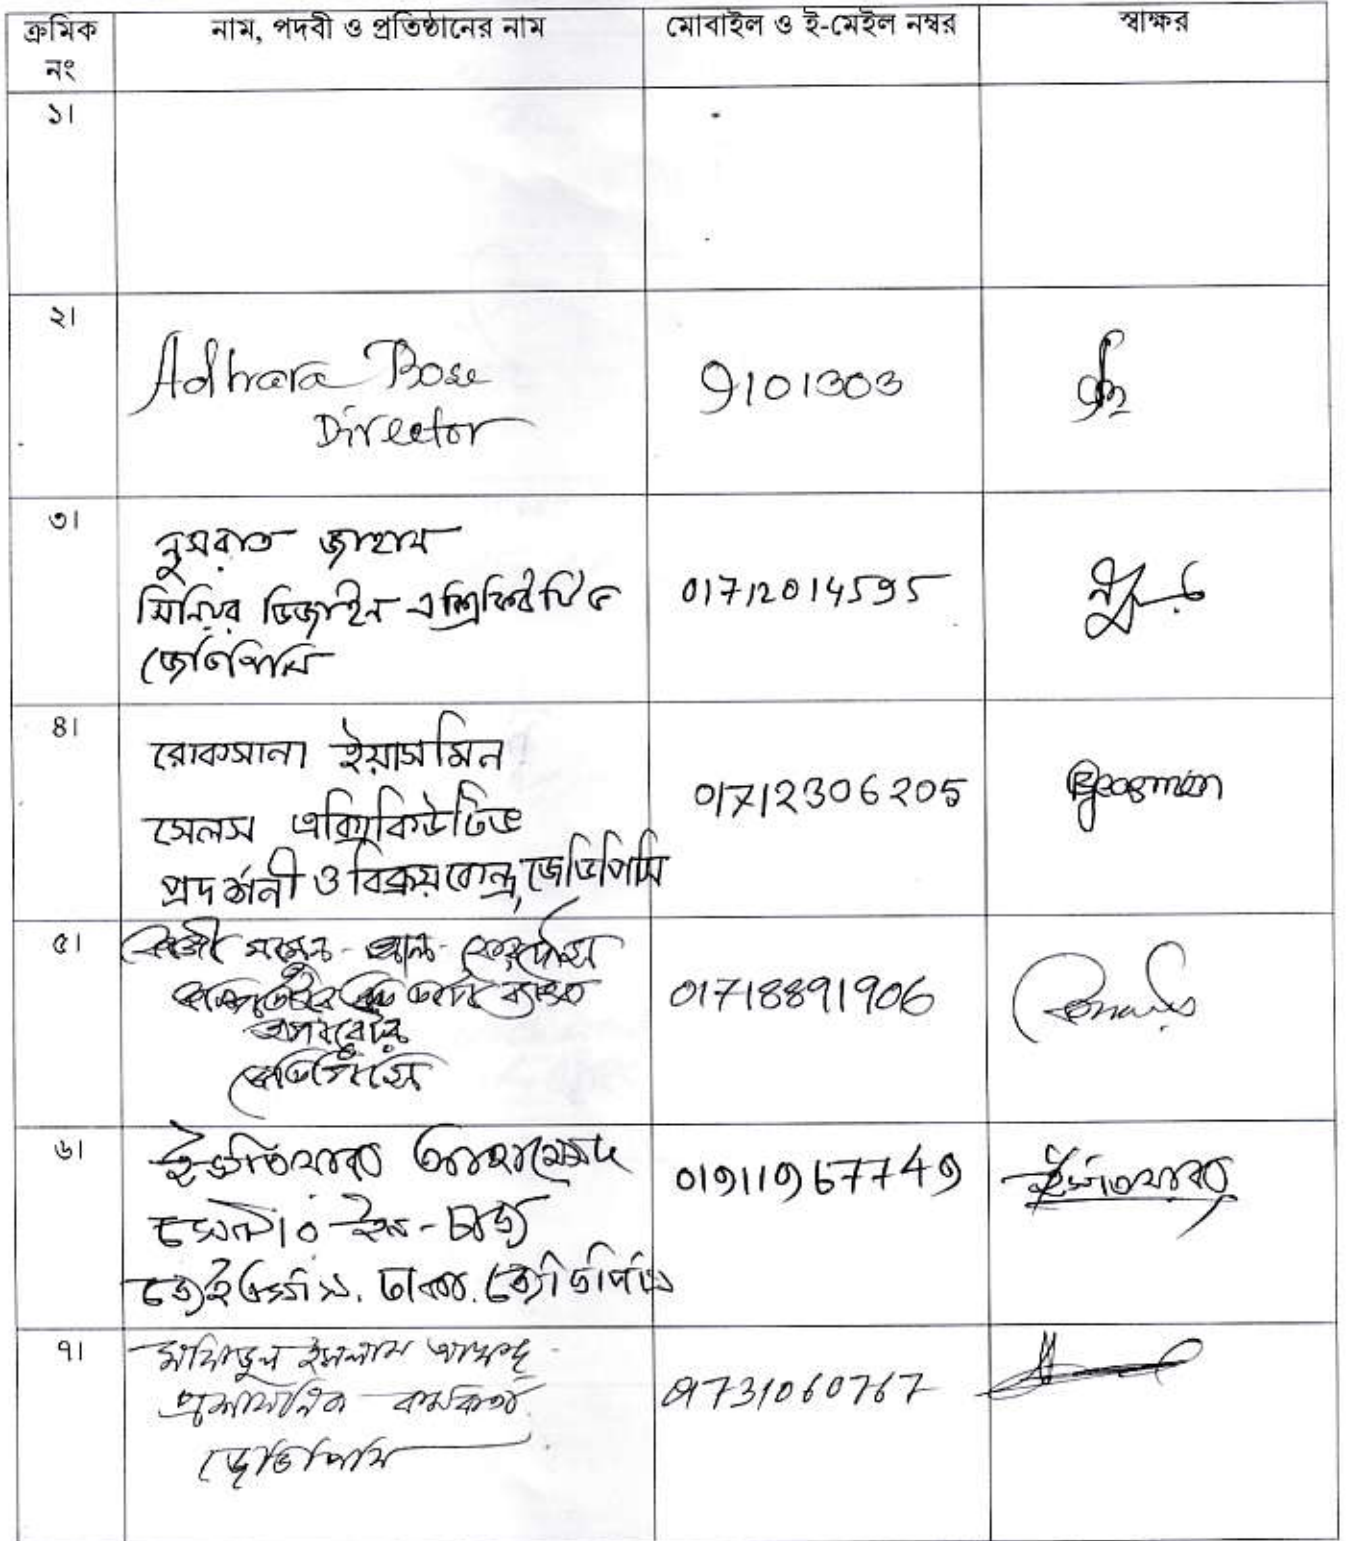 ক্রমিক নং
নাম, পদবী ও প্রতিষ্ঠানের নাম
মোবাইল ও ই-মেইল নম্বর
স্বাক্ষর
১।
২।
Adhara Bose
Director
9101303
৩।
নুসরাত জাহান
সিনিয়র ডিজাইন
জেডিপিসি
01712014595
৪।
রোকসানা ইয়াসমিন
সেলস এক্সিকিউটিভ
প্রদর্শনী ও বিক্রয় কেন্দ্র, জেডিপিসি
01712306205
৫।
অপারেটর
জেডিপিসি
01718891906
৬।
ইশতিয়াক আহামেদ
সেন্টার ইন-চার্জ
ঢাকা. জেডিপিসি
01911967749
ইশতিয়াক
৭।
ইসলাম
প্রশাসনিক কর্মকর্তা
জেডিপিসি
01731060767